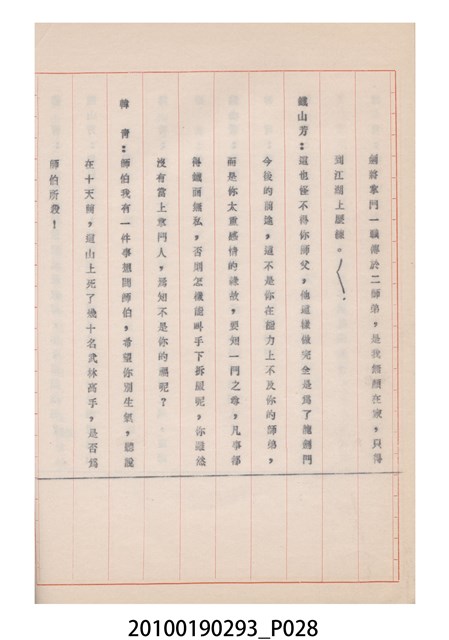 劍將掌門一職傳於二師弟，是我無顏在家，只得
到江湖上歷練。
鐵山芳：這也怪不得你師父，他這樣做完全是為了龍劍門
今後的前途，這不是你在能力上不及你的師弟，
而是你太重感情的緣故，要知一門之尊，凡事都
得鐵面無私，否則怎樣能叫手下折服呢，你雖然
沒有當上掌門人，焉知不是你的福呢？
韓　青：師伯我有一件事想問師伯，希望你別生氣，聽說
在十天前，這山上死了幾十名武林高手，是否為
師伯所殺！
20100190293_P028